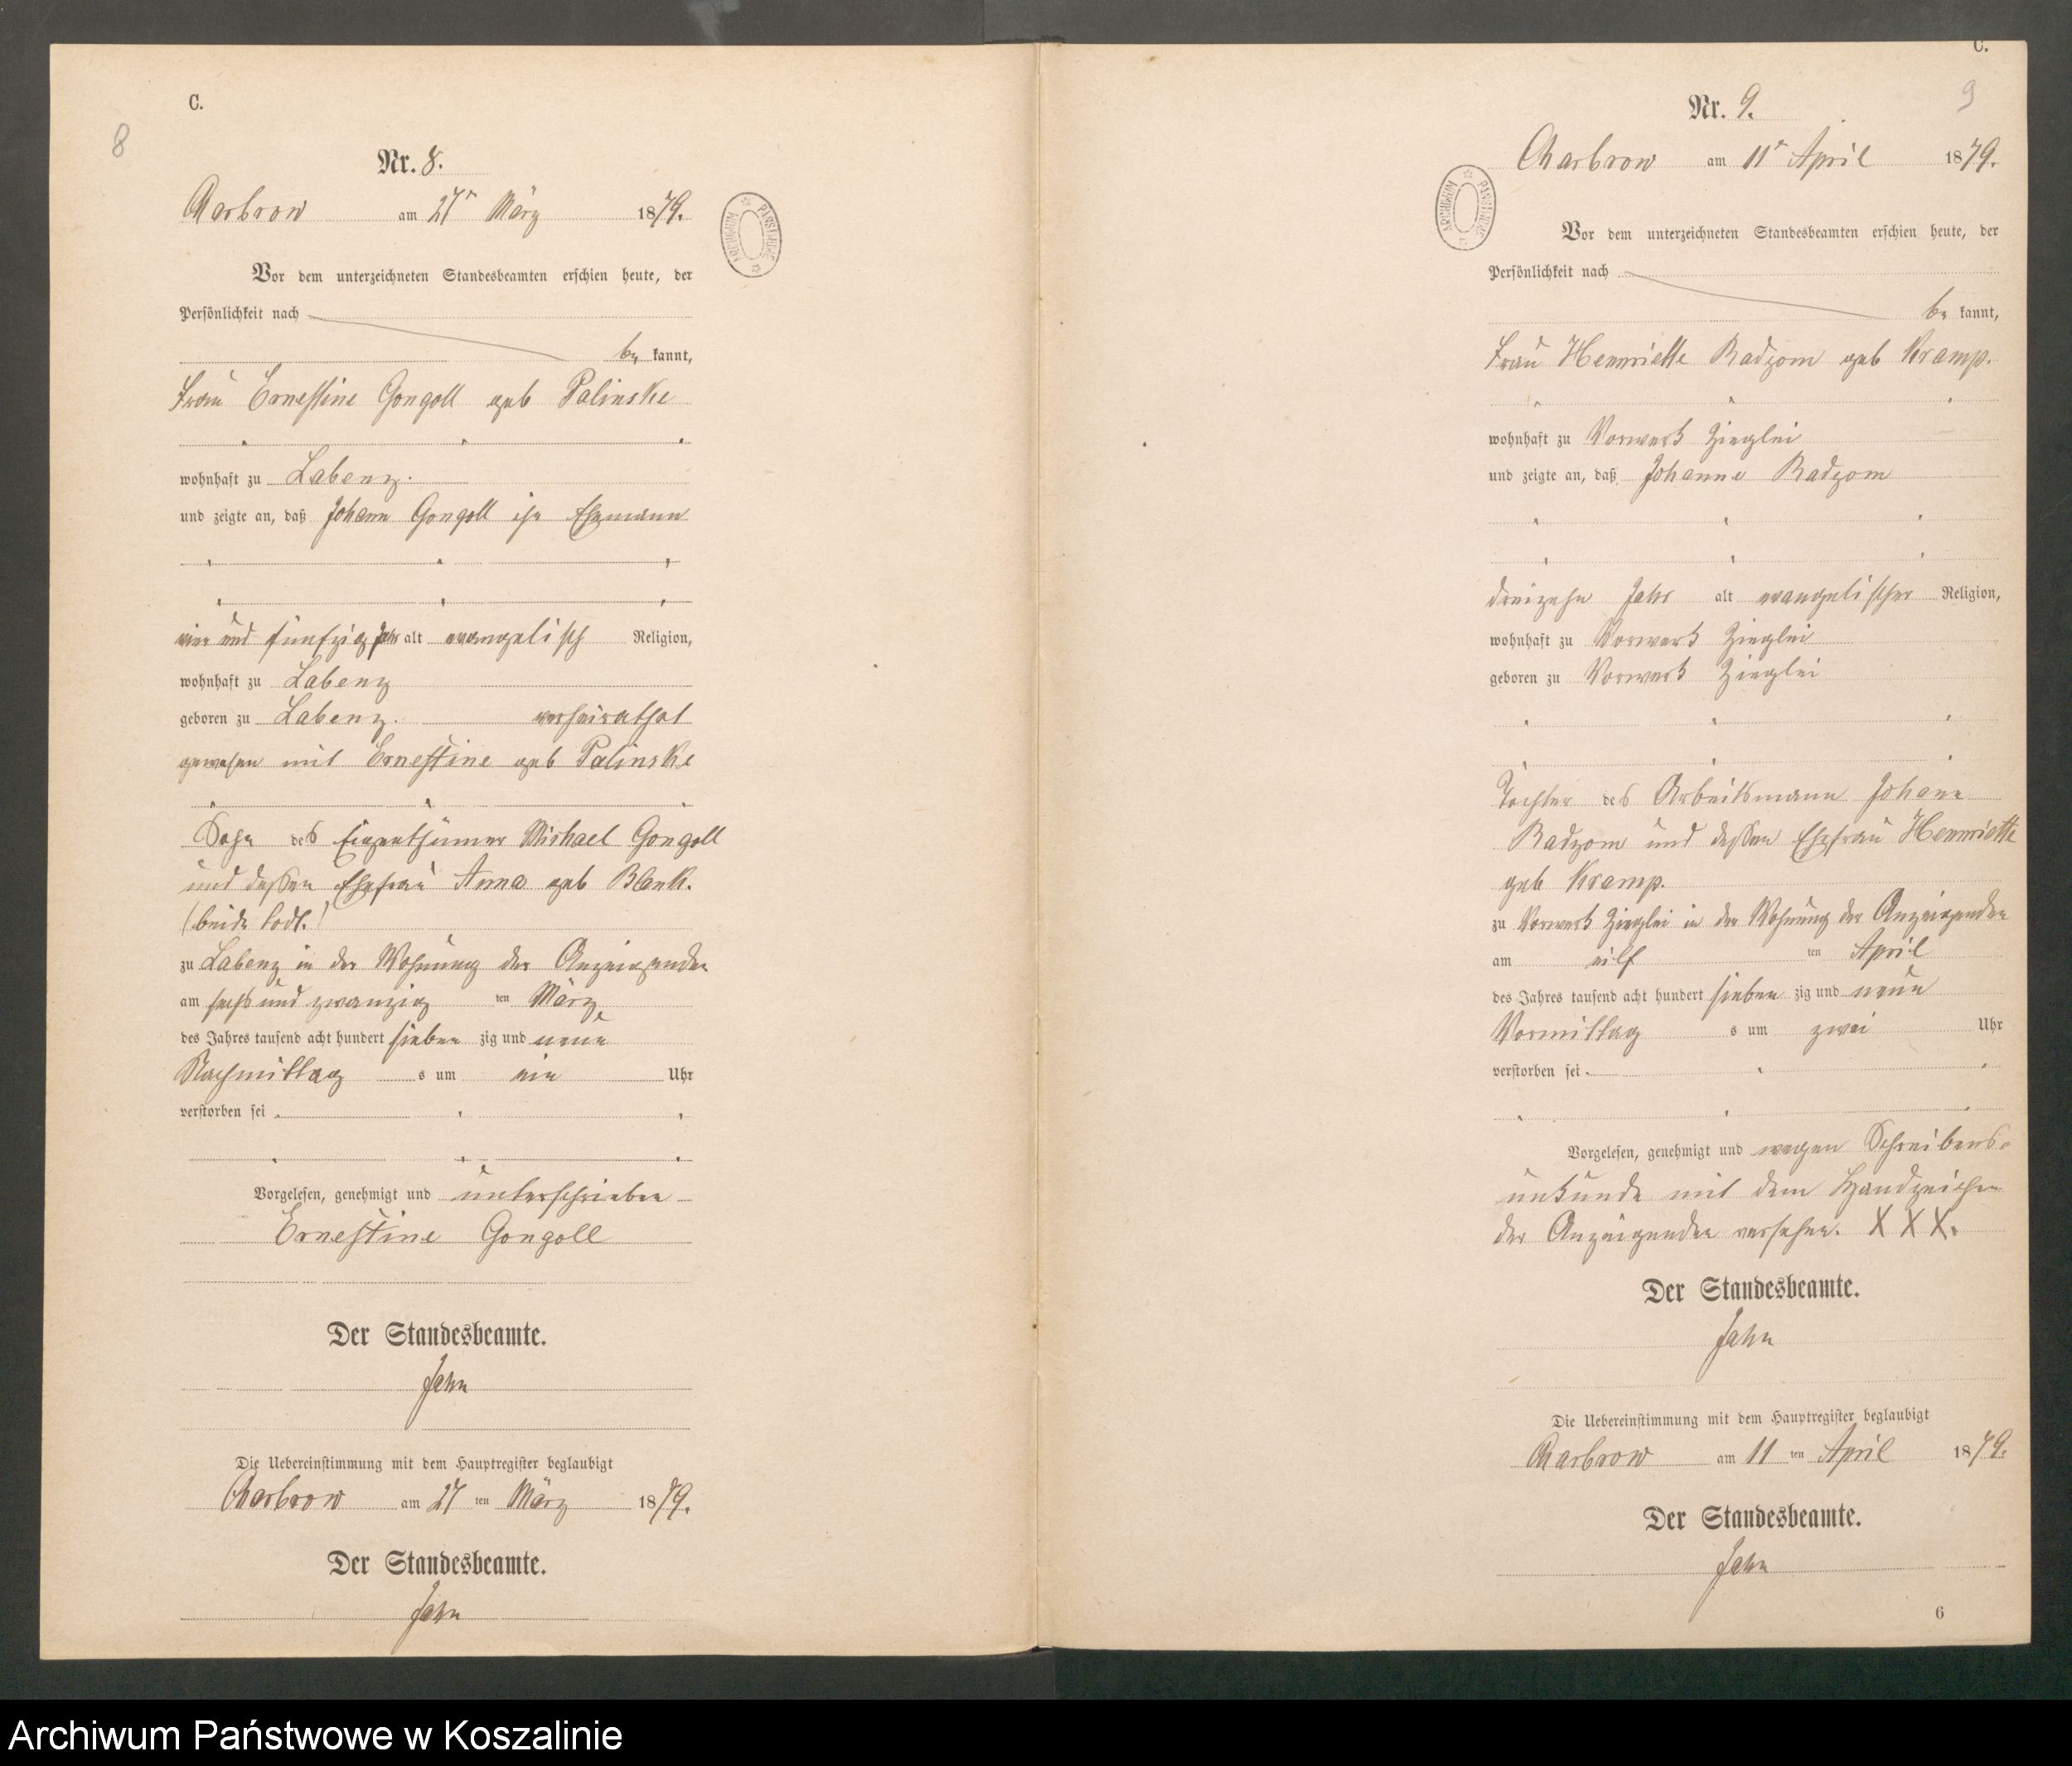 C.
8
Nr. 8.
Charbrow am 27n März 1879.
ARCHIWUM PAŃSTWOWE
Vor dem unterzeichneten Standesbeamten erschien heute, der
Persönlichkeit nach
be kannt,
Frau Ernestine Gongoll geb Palinske
wohnhaft zu Labenz.
und zeigte an, daß Johann Gongoll ihr Ehemann
vier und fünfzig Jahr alt evangelisch Religion,
wohnhaft zu Labenz
geboren zu Labenz. verheirathet
gewesen mit Ernestine geb Palinske
Sohn des Eigenthümer Michael Gongoll
und dessen Ehefrau Anna geb Blank.
(beide todt.)
zu Labenz in der Wohnung der Anzeigenden
am sechs und zwanzig ten März
des Jahres tausend acht hundert sieben zig und neun
Nachmittag s um ein Uhr
verstorben sei
Vorgelesen, genehmigt und unterschrieben
Ernestine Gongoll
Der Standesbeamte.
Jahn
Die Uebereinstimmung mit dem Hauptregister beglaubigt
Charbrow am 27 ten März 1879.
Der Standesbeamte.
Jahn
C.
9
Nr. 9.
Charbrow am 11n April 1879.
ARCHIWUM PAŃSTWOWE
Vor dem unterzeichneten Standesbeamten erschien heute, der
Persönlichkeit nach
be kannt,
Frau Hennriette Radzom geb Kramp.
wohnhaft zu Vorwerk Zieglei
und zeigte an, daß Johanne Radzom
dreizehn Jahr alt evangelischer Religion,
wohnhaft zu Vorwerk Zieglei
geboren zu Vorwerk Zieglei
Tochter des Arbeitsmann Johann
Radzom und dessen Ehefrau Hennriette
geb Kramp.
zu Vorwerk Zieglei in der Wohnung der Anzeigenden
am eilf ten April
des Jahres tausend acht hundert sieben zig und neun
Vormittag s um zwei Uhr
verstorben sei
Vorgelesen, genehmigt und wegen Schreibens-
unkunde mit dem Handzeichen
der Anzeigenden versehen. X X X.
Der Standesbeamte.
Jahn
Die Uebereinstimmung mit dem Hauptregister beglaubigt
Charbrow am 11 ten April 1879.
Der Standesbeamte.
Jahn
6
Archiwum Państwowe w Koszalinie